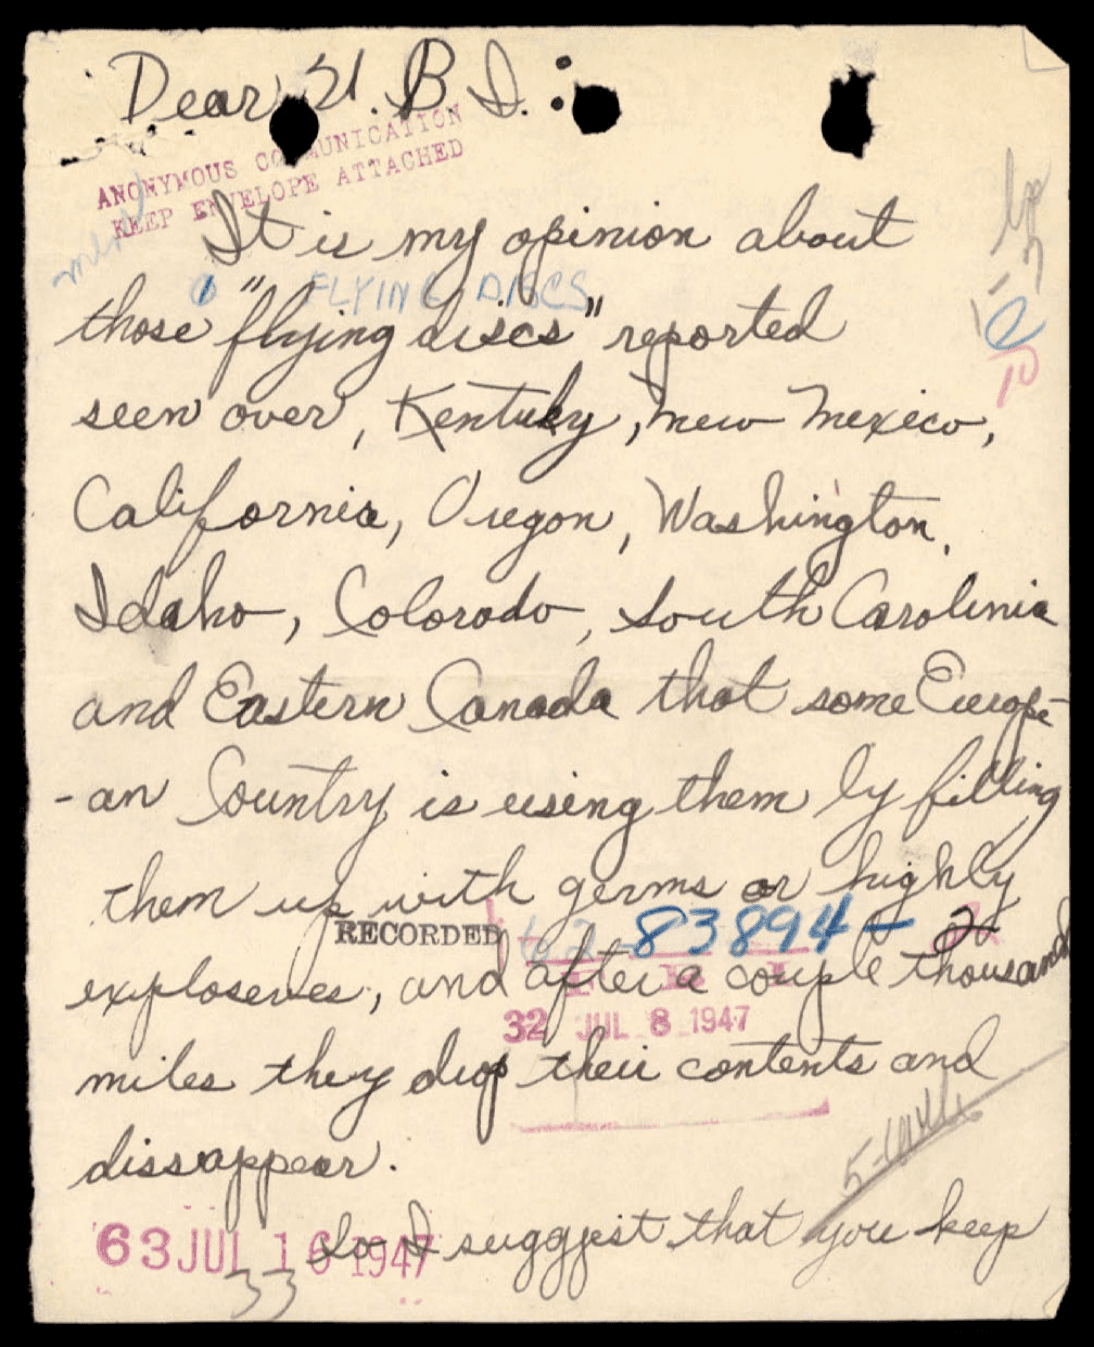 Dear F.B.I.:
ANONYMOUS COMMUNICATION
KEEP ENVELOPE ATTACHED
It is my opinion about
FLYING DISCS
those "flying discs" reported
seen over, Kentuky, new Mexico,
California, Oregon, Washington,
Idaho, Colorado, South Carolinia
and Eastern Canada that some Europe-
-an Country is using them by filling
them up with germs or highly
RECORDED
62-83894-2
exploseves, and after a couple thousand
F B I
32 JUL 8 1947
miles they drop their contents and
dissappear.
So I suggest that you keep
63 JUL 16 1947
33